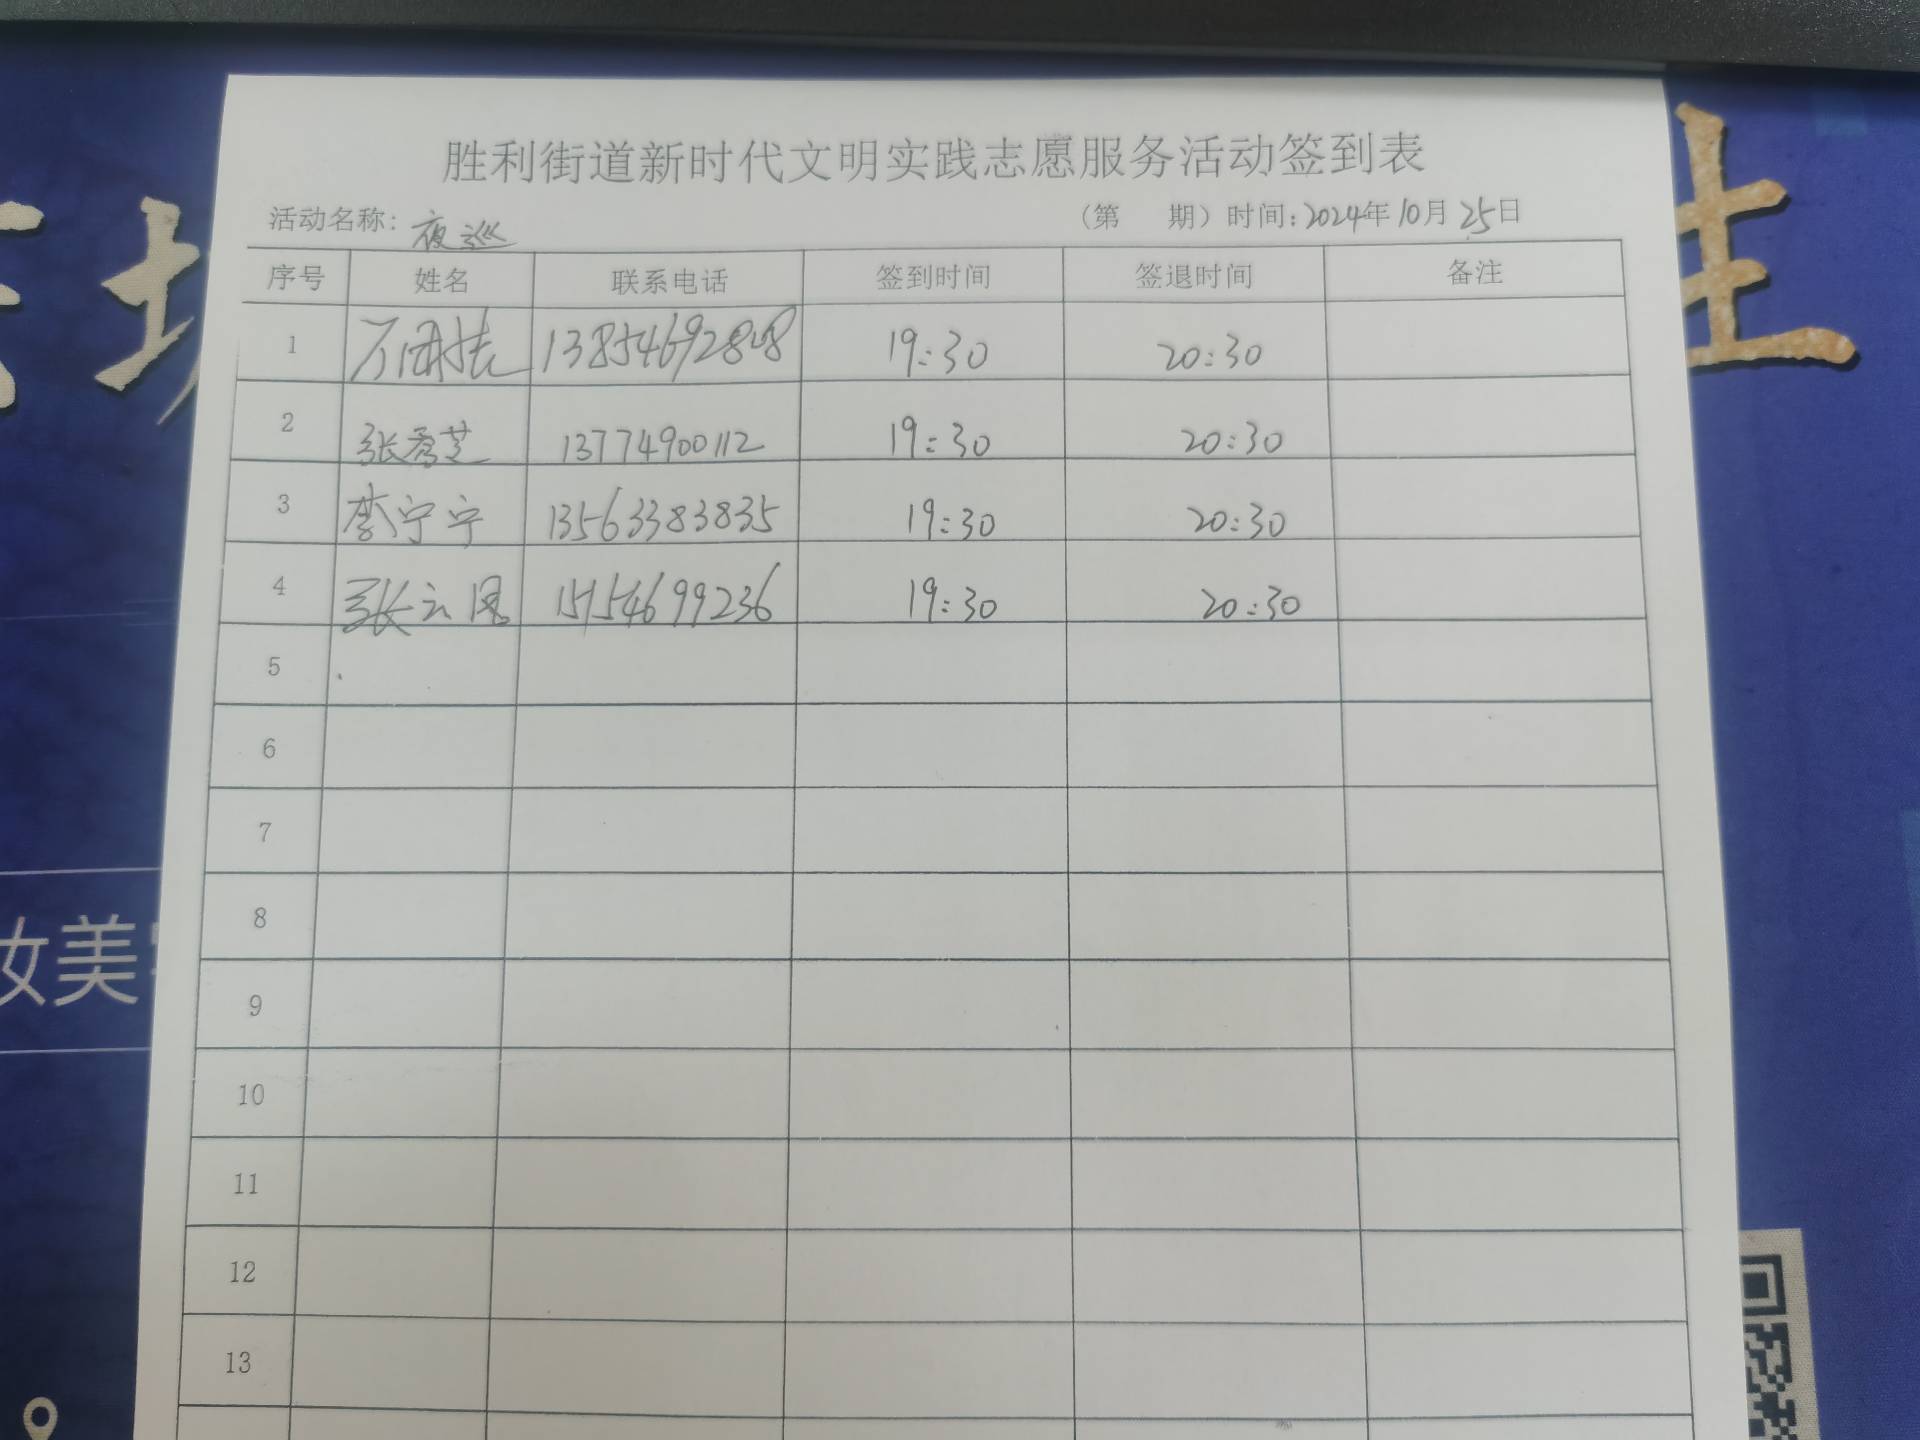 胜利街道新时代文明实践志愿服务活动签到表
活动名称：夜巡 （第 期）时间：2024年10月25日
序号 姓名 联系电话 签到时间 签退时间 备注
1 19:30 20:30
2 张秀芝 13774900112 19:30 20:30
3 李宁宁 13563383835 19:30 20:30
4 张云 15154699236 19:30 20:30
5
6
7
8
9
10
11
12
13
生
美